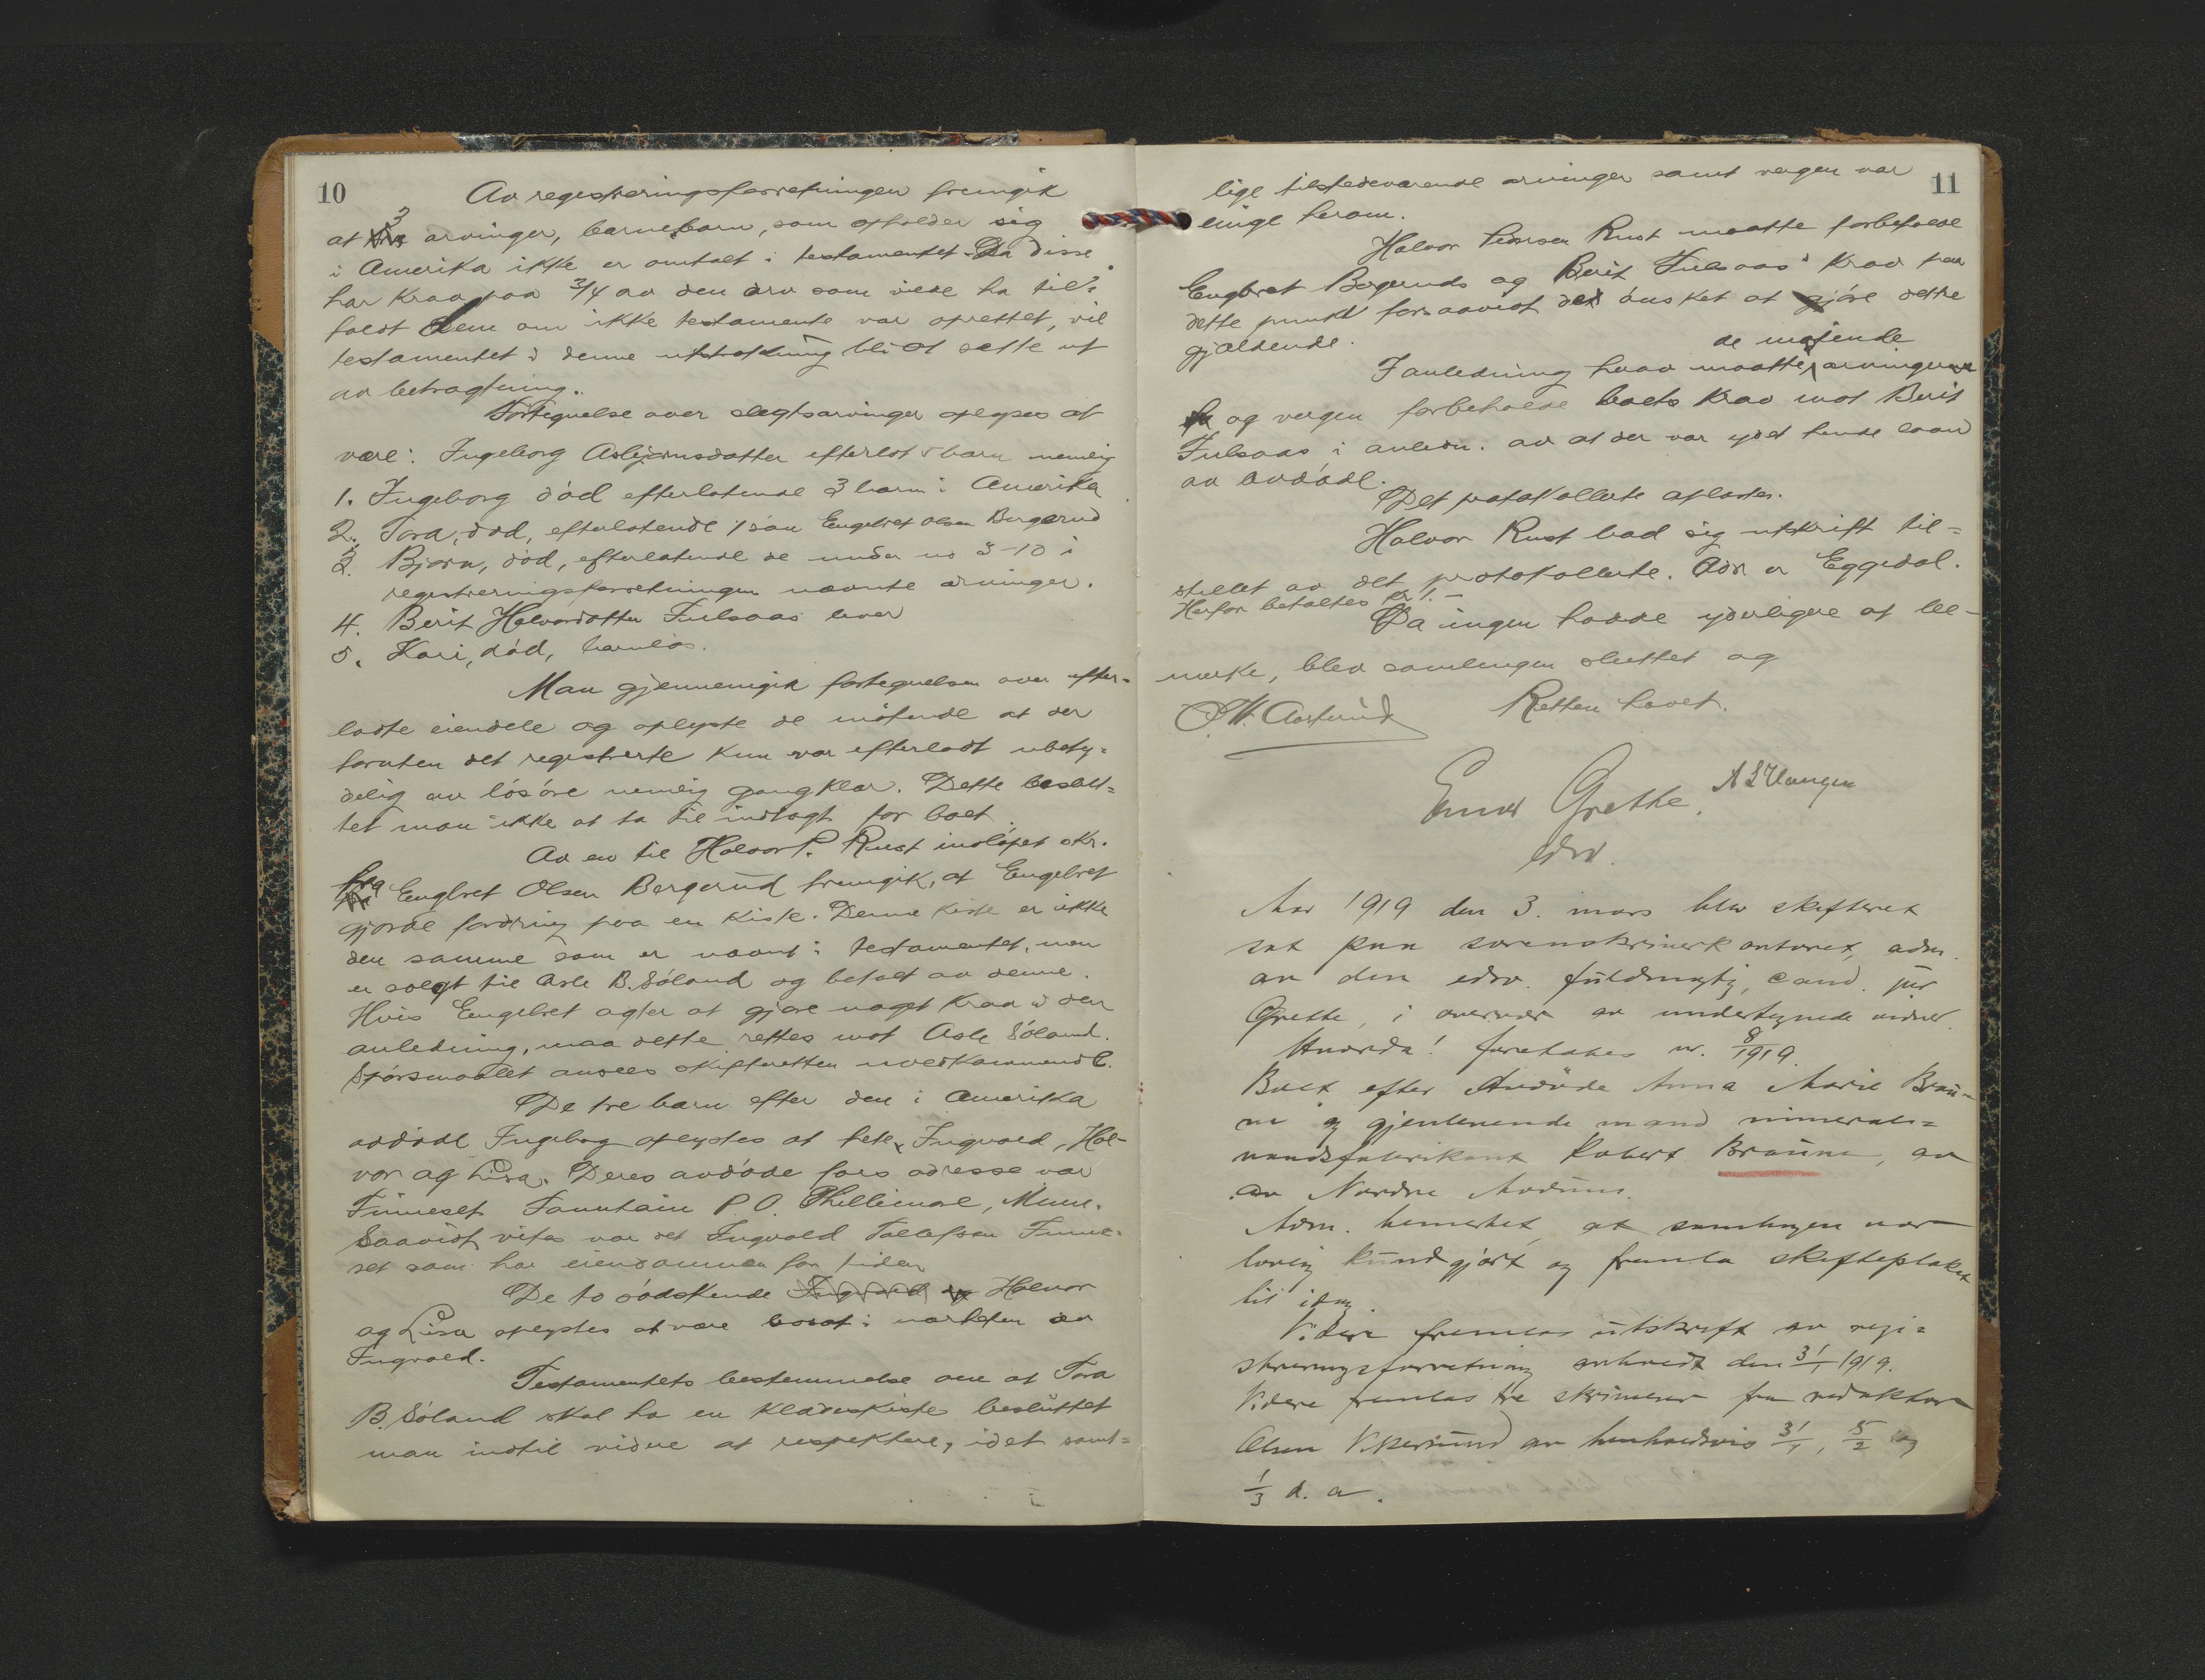 10
Av registreringsforretningen fremgik
at 3 arvinger, barnebarn, som opholder sig
i Amerika ikke er omtalt i testamentet. Da disse
har krav paa 3/4 av den arv som vilde ha til-
faldt dem om ikke testamente var oprettet, vil
testamentet i denne utstrækning bli at sætte ut
av betragtning.
Fortegnelse over slegtsarvinger oplyses at
være: Ingeborg Asbjørnsdatter efterlot 5 barn nemlig
1. Ingeborg død efterlatende 3 barn i Amerika
2. Tora, død, efterlatende 1 søn Engebret Olsen Bergerud
3. Bjørn, død, efterlatende de under no 3-10 i
registreringsforretningen nævnte arvinger.
4. Berit Halvorsdatter Fulsaas lever
5. Kari, død, barnløs.
Man gjennemgik fortegnelsen over efter=
ladte eiendele og oplyste de møtende at der
foruten det registrerte kun var efterladt ubety=
delig av løsøre nemlig gangklær. Dette beslut=
tet man ikke at ta til indtægt for boet.
Av en til Halvor P. Rust indløpet skr.
fra Engbret Olsen Bergerud fremgik, at Engebret
gjorde fordring paa en kiste. Denne kiste er ikke
den samme som er nævnt i testamentet, men
er solgt til Asle B. Søland og betalt av denne.
Hvis Engebret agter at gjøre noget krav i den
anledning, maa dette rettes mot Asle Søland.
Spørsmaalet ansees skifteretten uvedkommende.
De tre barn efter den i Amerika
avdøde Ingeborg oplystes at hete Ingvald, Hal-
vor og Lisa. Deres avdøde fars adresse var
Finneset Fountain P.O. Phillimore, Minn.
Saavidt vites var det Ingvald Tollefsen Finne=
set som har eiendommen for tiden
De to sødskende Ingvald og Halvor
og Lisa oplystes at være bosat i nærheten av
Ingvald.
Testamentets bestemmelse om at Tora
B. Søland skal ha en klædeskiste besluttet
man indtil videre at respektere, idet samt=
11
lige tilstedeværende arvinger samt vergen var
enige herom.
Halvor Pedersen Rust maatte forbeholde
Engbret Bergeruds og Berit Fulsaas' krav paa
dette punkt forsaavidt det ønsket at gjøre dette
gjældende.
de møtende
I anledning herav maatte arvingerne
og vergen forbeholde boets krav mot Berit
Fulsaas i anledn. av at der var ydet hende laan
av avdøde.
Det protokollerte oplæstes.
Halvor Rust bad sig utskrift til=
stillet av det protokollerte. Adr er Eggedal.
Herfor betaltes kr 1.-
Da ingen hadde yderligere at be-
merke, blev samlingen sluttet og
Retten hævet.
Einar Grette.
edsv.
Aar 1919 den 3. mars blev skifteret
sat paa sorenskriverkontoret, adm.
av den edsv. fuldmægtig, cand. jur
Grette, i overvær av undertegnede vidner.
Hvorda! foretages nr. 8/1919.
Boet efter Avdøde Anna Marie Brau-
ne og gjenlevende mand mineral=
vandsfabrikant Robert Braune, av
av Nordre Modum.
Adm. bemerket, at samlingen var
lovlig kundgjort og fremla skifteplakat
til idag.
Videre fremlas utskrift av regi=
streringsforretning avholdt den 31/1 1919.
Videre fremlas tre skrivelser fra redaktør
Olsen Vikersund av henholdsvis 31/1, 5/2 og
1/3 d. a.